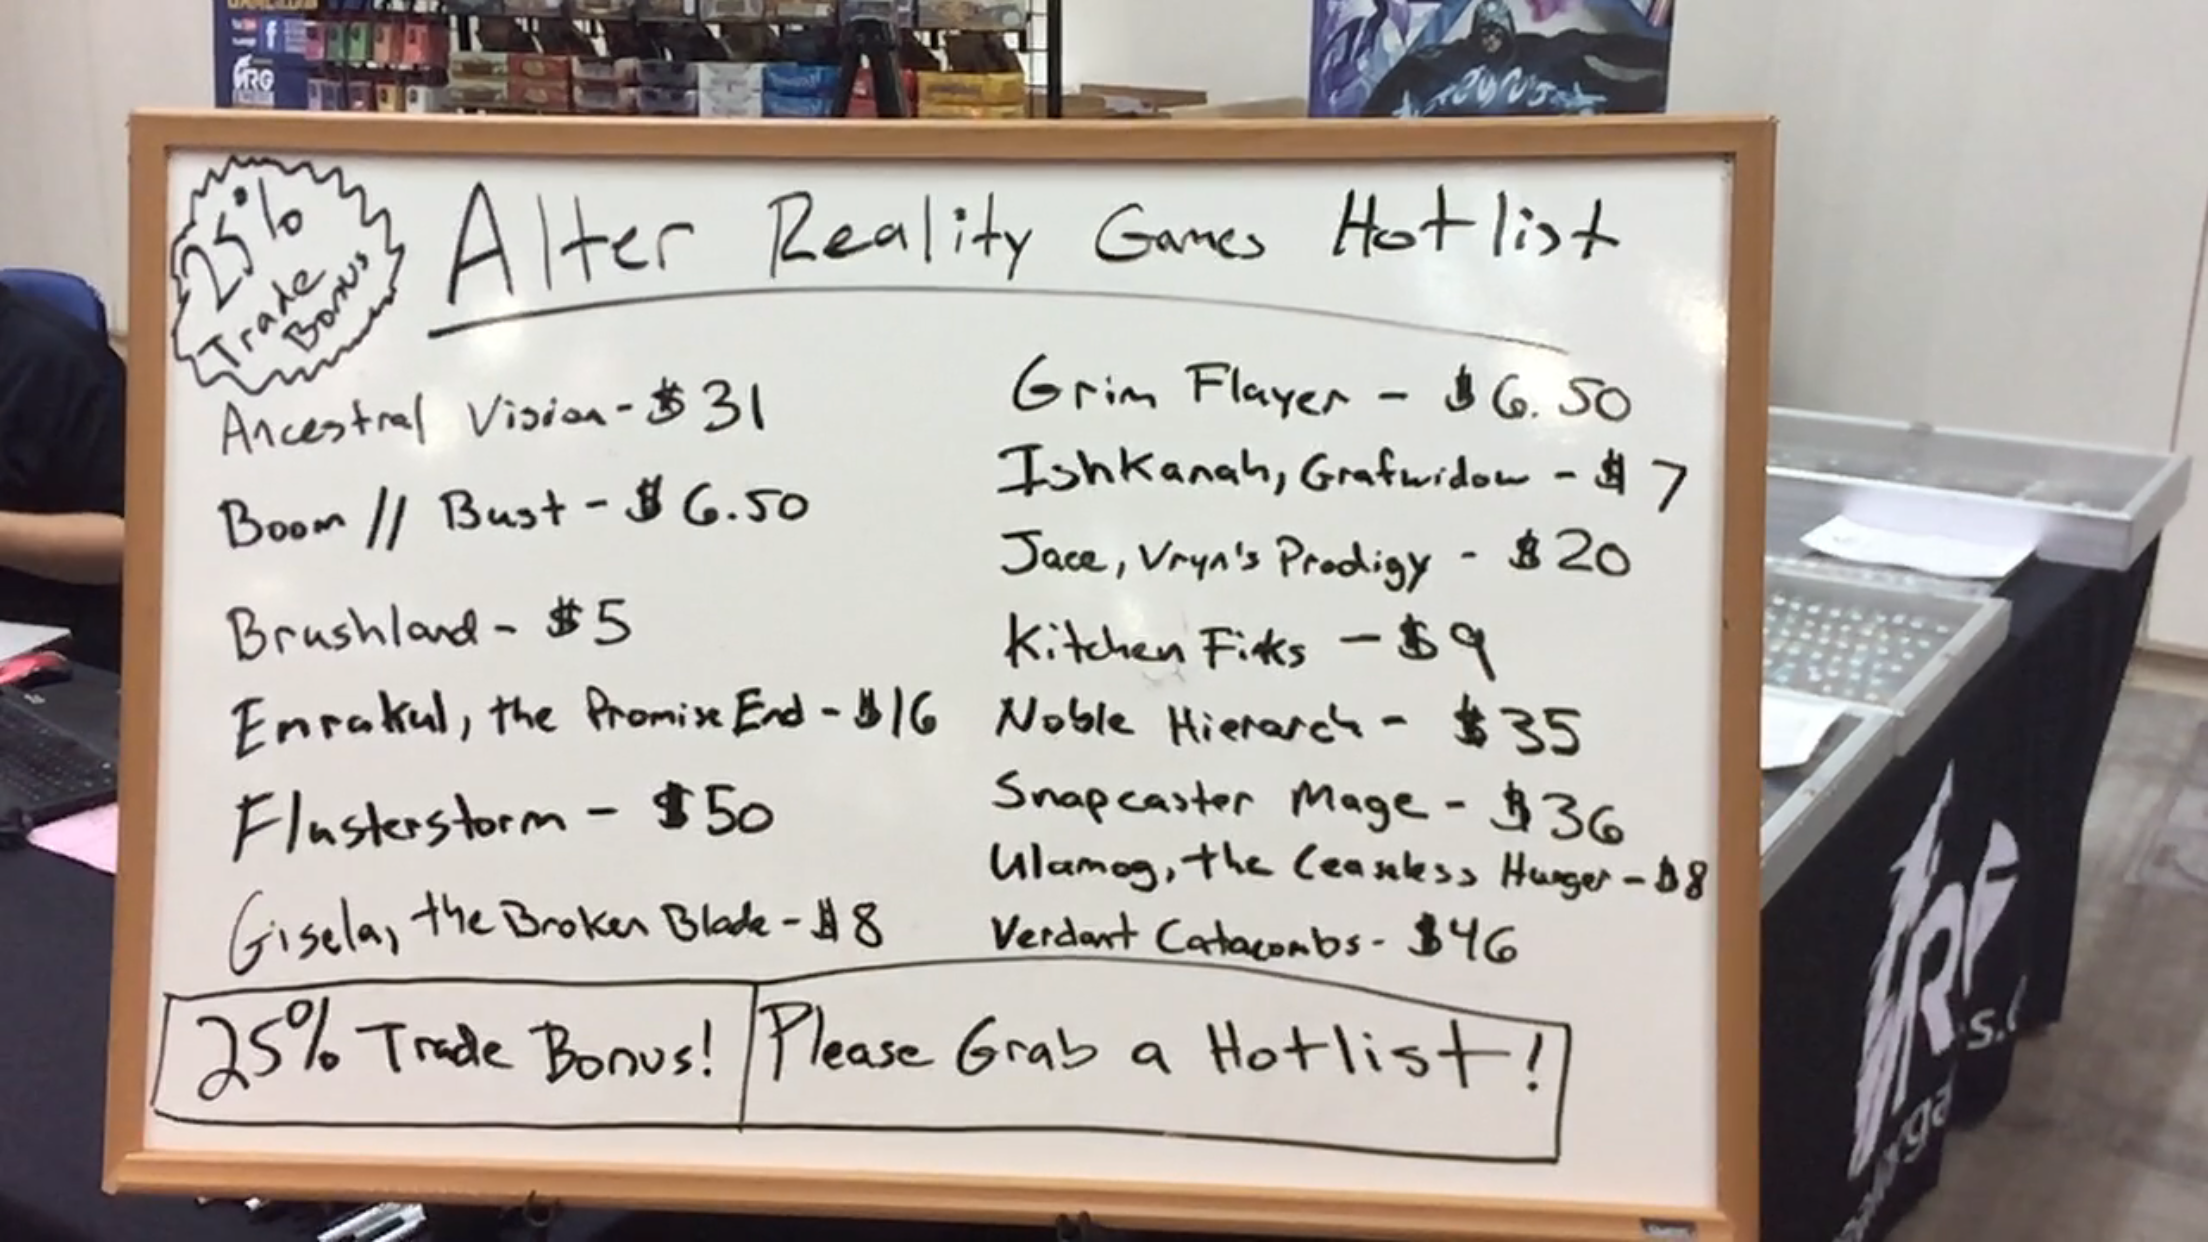 25%
Trade
Bonus
Alter Reality Games Hotlist
Ancestral Vision - $31
Boom // Bust - $6.50
Brushland - $5
Emrakul, the Promise End - $16
Flusterstorm - $50
Gisela, the Broken Blade - $8
Grim Flayer - $6.50
Ishkanah, Grafwidow - $7
Jace, Vryn's Prodigy - $20
Kitchen Finks - $9
Noble Hierarch - $35
Snapcaster Mage - $36
Ulamog, the Ceaseless Hunger - $8
Verdant Catacombs - $46
25% Trade Bonus!
Please Grab a Hotlist!
ARG